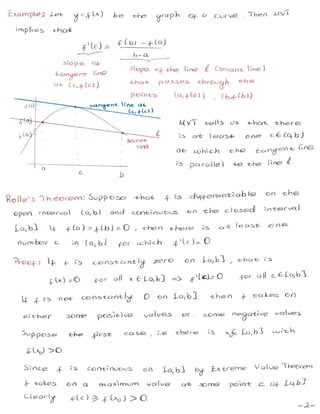 Example: Let y = f(x) be the graph of a curve. Then MVT
implies that
f'(c) = f(b) - f(a) / b-a
slope of tangent line at (c, f(c))
slope of the line l (secant line) that passes through the points (a, f(a)), (b, f(b))
tangent line at (c, f(c))
f(c)
f(a)
f(b)
l
secant line
a c b
MVT tells us that there
is at least one c∈(a,b)
at which the tangent line
is parallel to the line l
Rolle's Theorem: Suppose that f is differentiable on the
open interval (a,b) and continuous on the closed interval
[a,b]. If f(a) = f(b) = 0, then there is at least one
number c in (a,b) for which f'(c) = 0.
Proof: If f is constantly zero on [a,b], that is
f(x) = 0 for all x ∈ [a,b] => f'(c) = 0 for all c ∈ [a,b]
If f is not constantly 0 on [a,b] then f takes on
either some positive values or some negative values
Suppose the first case, i.e there is x₀∈ [a,b] with
f(x₀) > 0.
Since f is continuous on [a,b] by Extreme Value Theorem
f takes on a maximum value at some point c of [a,b]
Clearly f(c) ⩾ f(x₀) > 0
-2-